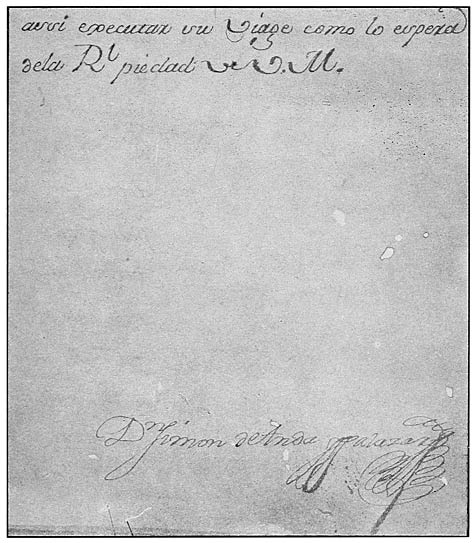 assi executar su Viage como lo espera
dela Rl piedad de V. M.
Dn Simon de Anda y Salazar